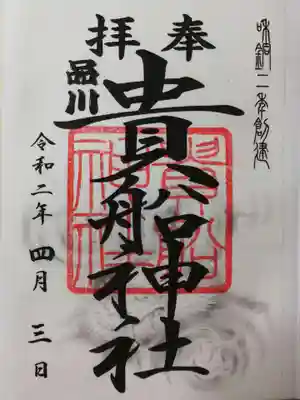 和銅二年創建
奉拝
品川
貴船神社
令和二年四月三日